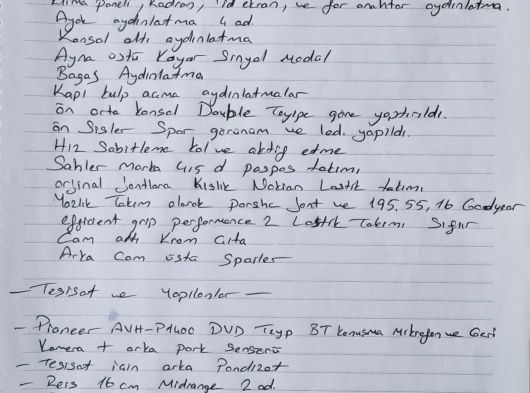 Klima paneli, Kadran, lcd ekran, ve far anahtar aydınlatma.
Ayak aydınlatma 4 ad.
Konsol altı aydınlatma
Ayna üstü Kayar Sinyal modül
Bagaj Aydınlatma
Kapı kulp açma aydınlatmalar
ön orta konsol Double Teype göre yaptırıldı.
ön Sisler Spor görünüm ve led. yapıldı.
Hız Sabitleme kol ve aktif etme
Sahler marka 4,5 d paspas takımı
orjinal jantlara Kışlık Nokian Lastik takımı
Yazlık Takım olarak porshe Jant ve 195, 55, 16 Goodyear
efficient grip performance 2 Lastik Takımı Sıfır
Cam altı Krom Çıta
Arka Cam üstü Spoiler
— Tesisat ve Yapılanlar —
- Pioneer AVH-P1400 DVD Teyp BT konuşma Mikrofon ve Geri
Kamera + arka park Sensörü
- Tesisat için arka Pandizot
- Reis 16 cm Midrange 2 ad.